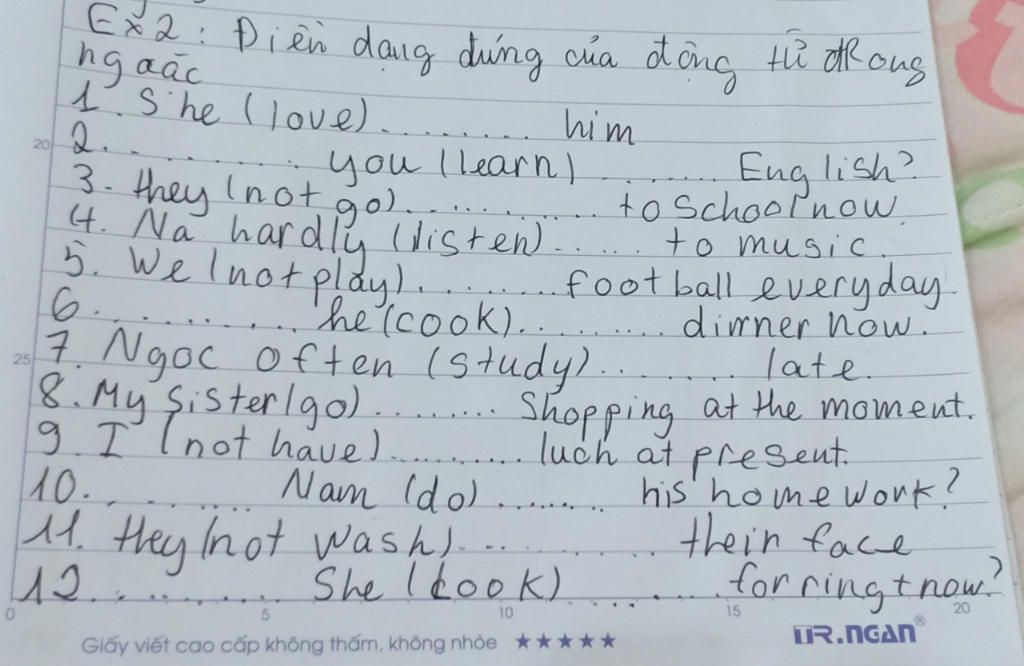 Ex2: Điền dạng đúng của động từ trong
ngoặc
1. She (love)........ him
20
2. ............ you (learn) ....... English?
3. they (not go)............. to School now.
4. Na hardly (listen)..... to music.
5. We (not play)......... football everyday.
6. ............ he (cook).......... dinner now.
25
7. Ngoc often (study)......... late.
8. My sister (go)......... Shopping at the moment.
9. I (not have)......... luch at present.
10. ......... Nam (do)....... his homework?
11. they (not wash)............. their face
12. .......... She (look) .......... for ring + now?
0 5 10 15 20
Giấy viết cao cấp không thấm, không nhòe ★★★★★
TR.NGAN®